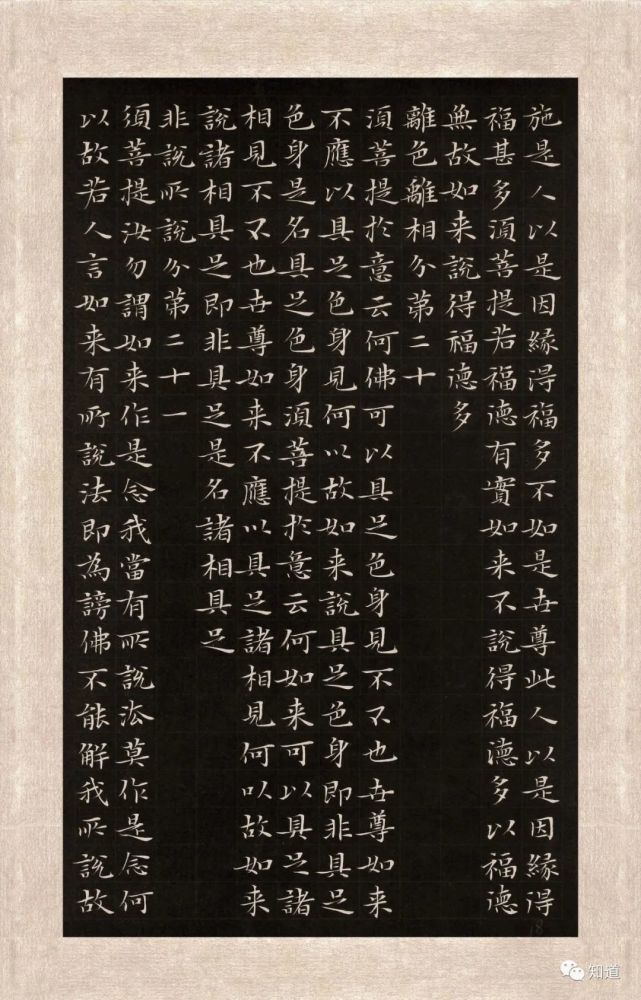 施是人以是因緣得福多不如是世尊此人以是因緣得
福甚多須菩提若福德有實如来不說得福德多以福德
無故如来說得福德多
離色離相分第二十
須菩提於意云何佛可以具足色身見不不也世尊如来
不應以具足色身見何以故如来說具足色身即非具足
色身是名具足色身須菩提於意云何如来可以具足諸
相見不不也世尊如来不應以具足諸相見何以故如来
說諸相具足即非具足是名諸相具足
非說所說分第二十一
須菩提汝勿謂如来作是念我當有所說法莫作是念何
以故若人言如来有所說法即為謗佛不能解我所說故
18
知道